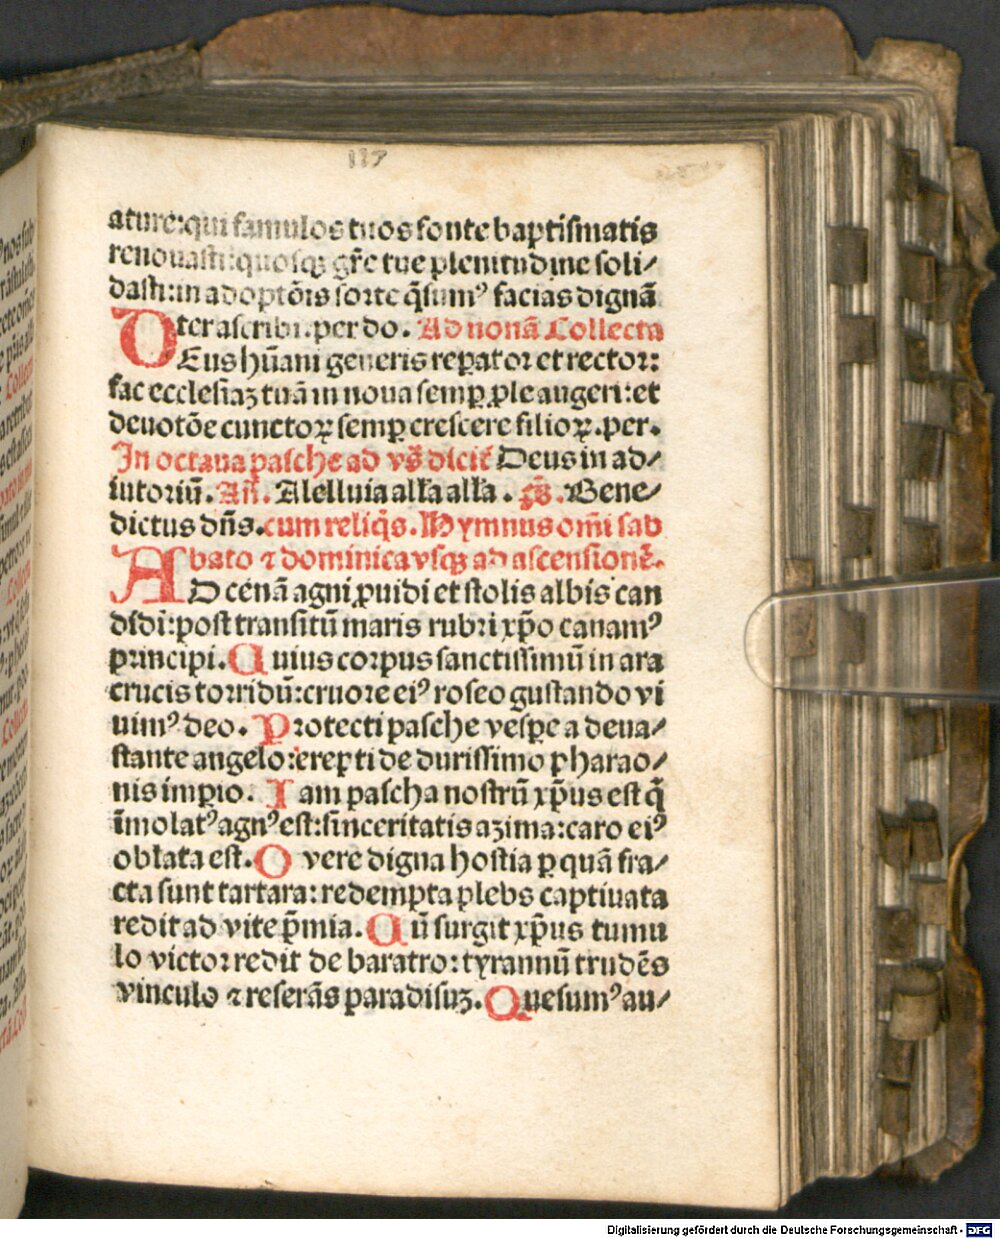 117
ature:qui famulos tuos fonte baptiſmatis
renouaſti:quoſqꝫ gr̄e tue plenitudine ſoli⸗
daſti:in adoptōis ſorte q̄ſumꝰ facias dignā
ter aſcribi.per do. Ad nonā Collecta
DEus hūani generis reꝑator et rector:
fac eccleſiaꝫ tuā in noua ſemꝑ ꝓle augeri:et
deuotōe cunctoꝝ ſemꝑ creſcere filioꝝ.per.
In octaua paſche ad vs̄ dicit̄ Deus in ad⸗
iutoriū. Añ. Alelluia alła alła . ps̄. Bene⸗
dictus dñs.cum reliq̄s. Hymnus om̄i ſab
bato ⁊ dominica vſqꝫ ad aſcenſionē.
AD cenā agni ꝓuidi et ſtolis albis can
didi:poſt tranſitū maris rubri xp̄o canamꝰ
principi. Quius corpus ſanctiſſimū in ara
crucis torridū:cruore eiꝰ roſeo guſtando vi
uimꝰ deo. Protecti paſche veſꝑe a deua⸗
ſtante angelo:erepti de duriſſimo pharao⸗
nis imꝑio. Iam paſcha noſtrū xp̄us eſt q̄
īmolatꝰ agnꝰ eſt:ſinceritatis azima:caro eiꝰ
oblata eſt. O vere digna hoſtia ꝑ quā fra⸗
cta ſunt tartara:redempta plebs captiuata
redit ad vite p̄mia. Qū ſurgit xp̄us tumu
lo victor redit de baratro:tyrannū trudēs
vinculo ⁊ reſerās paradiſuꝫ. Queſumꝰ au⸗
Digitalisierung gefördert durch die Deutsche Forschungsgemeinschaft - DFG